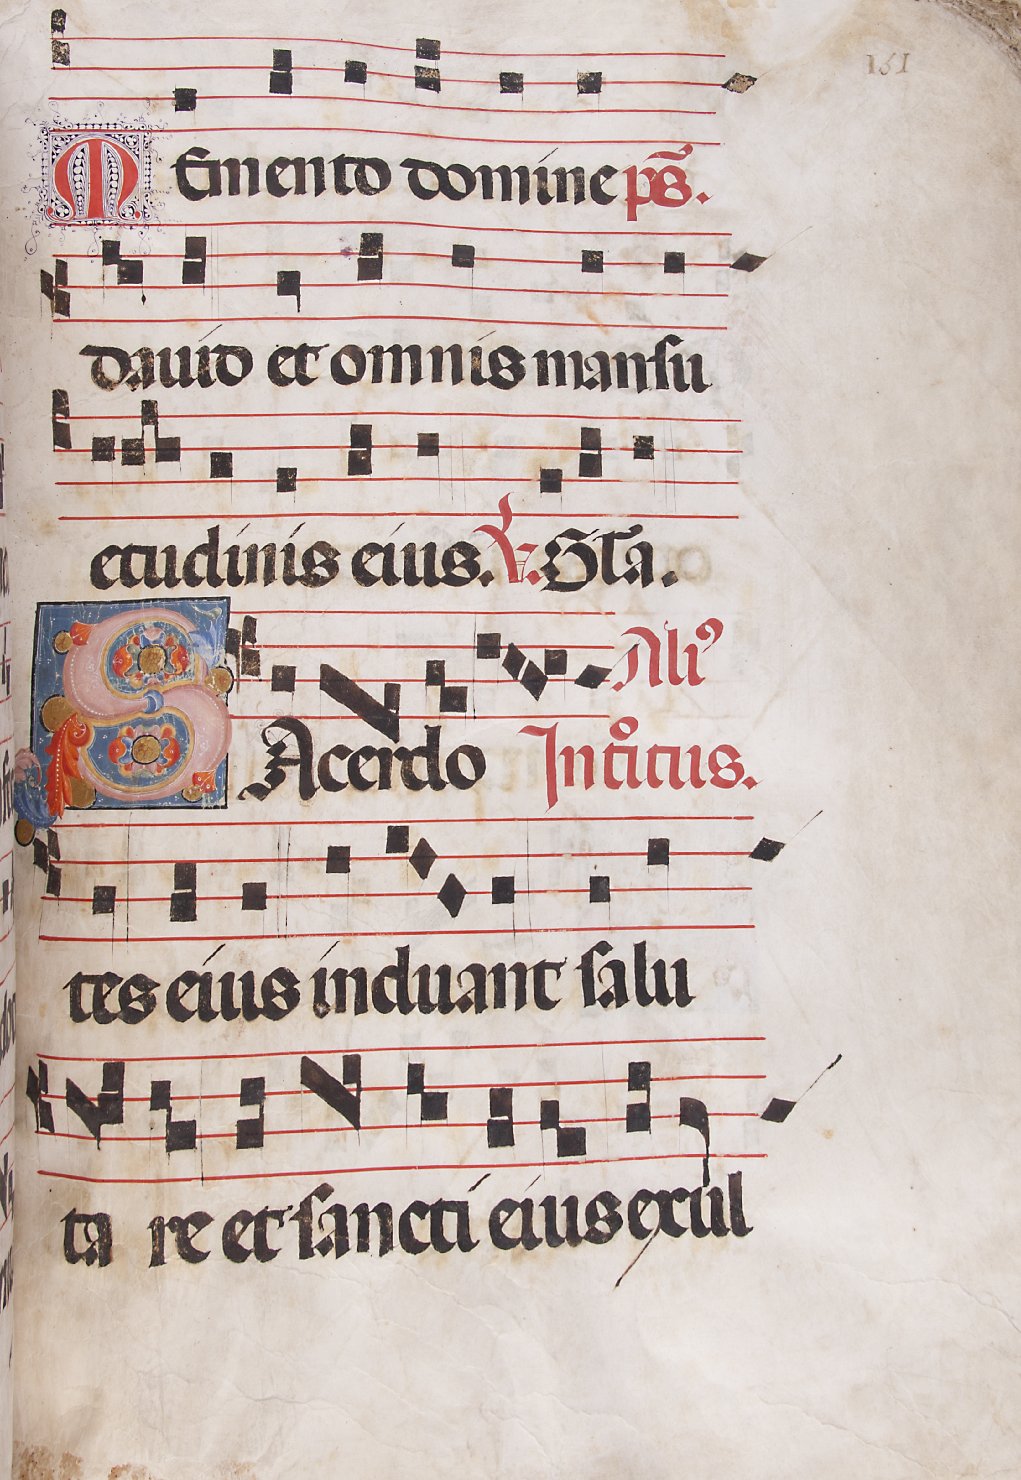 151
Memento domine ps̄.
dauid et omnis mansu
etudinis eius. ℣. Gl̄a.
Aliꝰ
Sacerdo Introitus.
tes eius induant salu
ta re et sancti eius exul